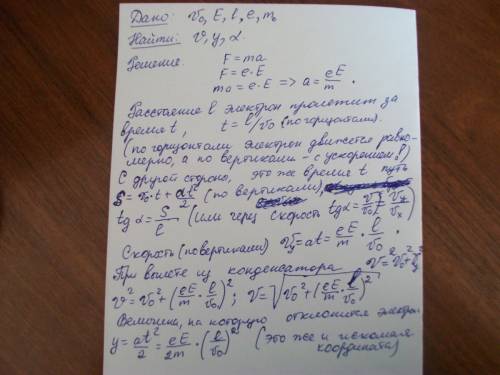 Дано: v₀, E, l, e, m
Найти: v, y, α
Решение. F = ma
F = e·E
ma = e·E => a = eE/m.
Расстояние l электрон пролетит за
время t, t = l/v₀ (по горизонтали).
(по горизонтали электрон движется равно-
мерно, а по вертикали – с ускорением)
С другой стороны, это же время t путь
S = v₀·t + at²/2 (по вертикали),
tg α = S/l (или через скорость tg α = v_y/v_x)
Скорость (по вертикали) v_y = at = eE/m · l/v₀.
При вылете из конденсатора v² = v₀² + v_y²
v² = v₀² + (eE/m · l/v₀)²; v = √(v₀² + (eE/m · l/v₀)²)
Величина, на которую отклонится электрон
y = at²/2 = eE/2m · (l/v₀)² (это же и искомая
координата)